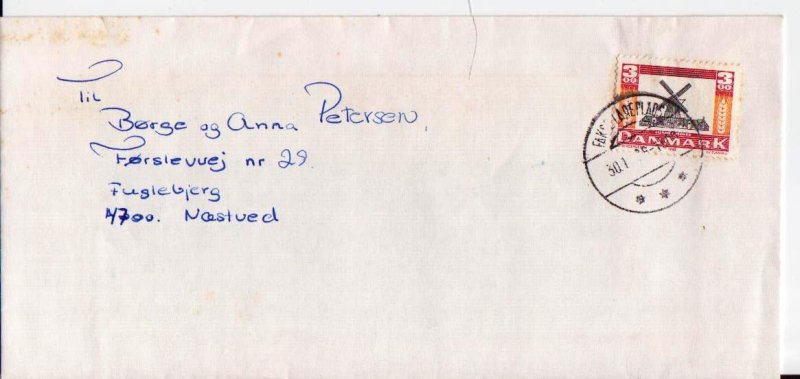 Til
Børge og Anna Petersen,
Førslevvej nr 29
Fuglebjerg
4700. Næstved
3 00 3 00
DANMARK
FAKSE LADEPLADS
30.1